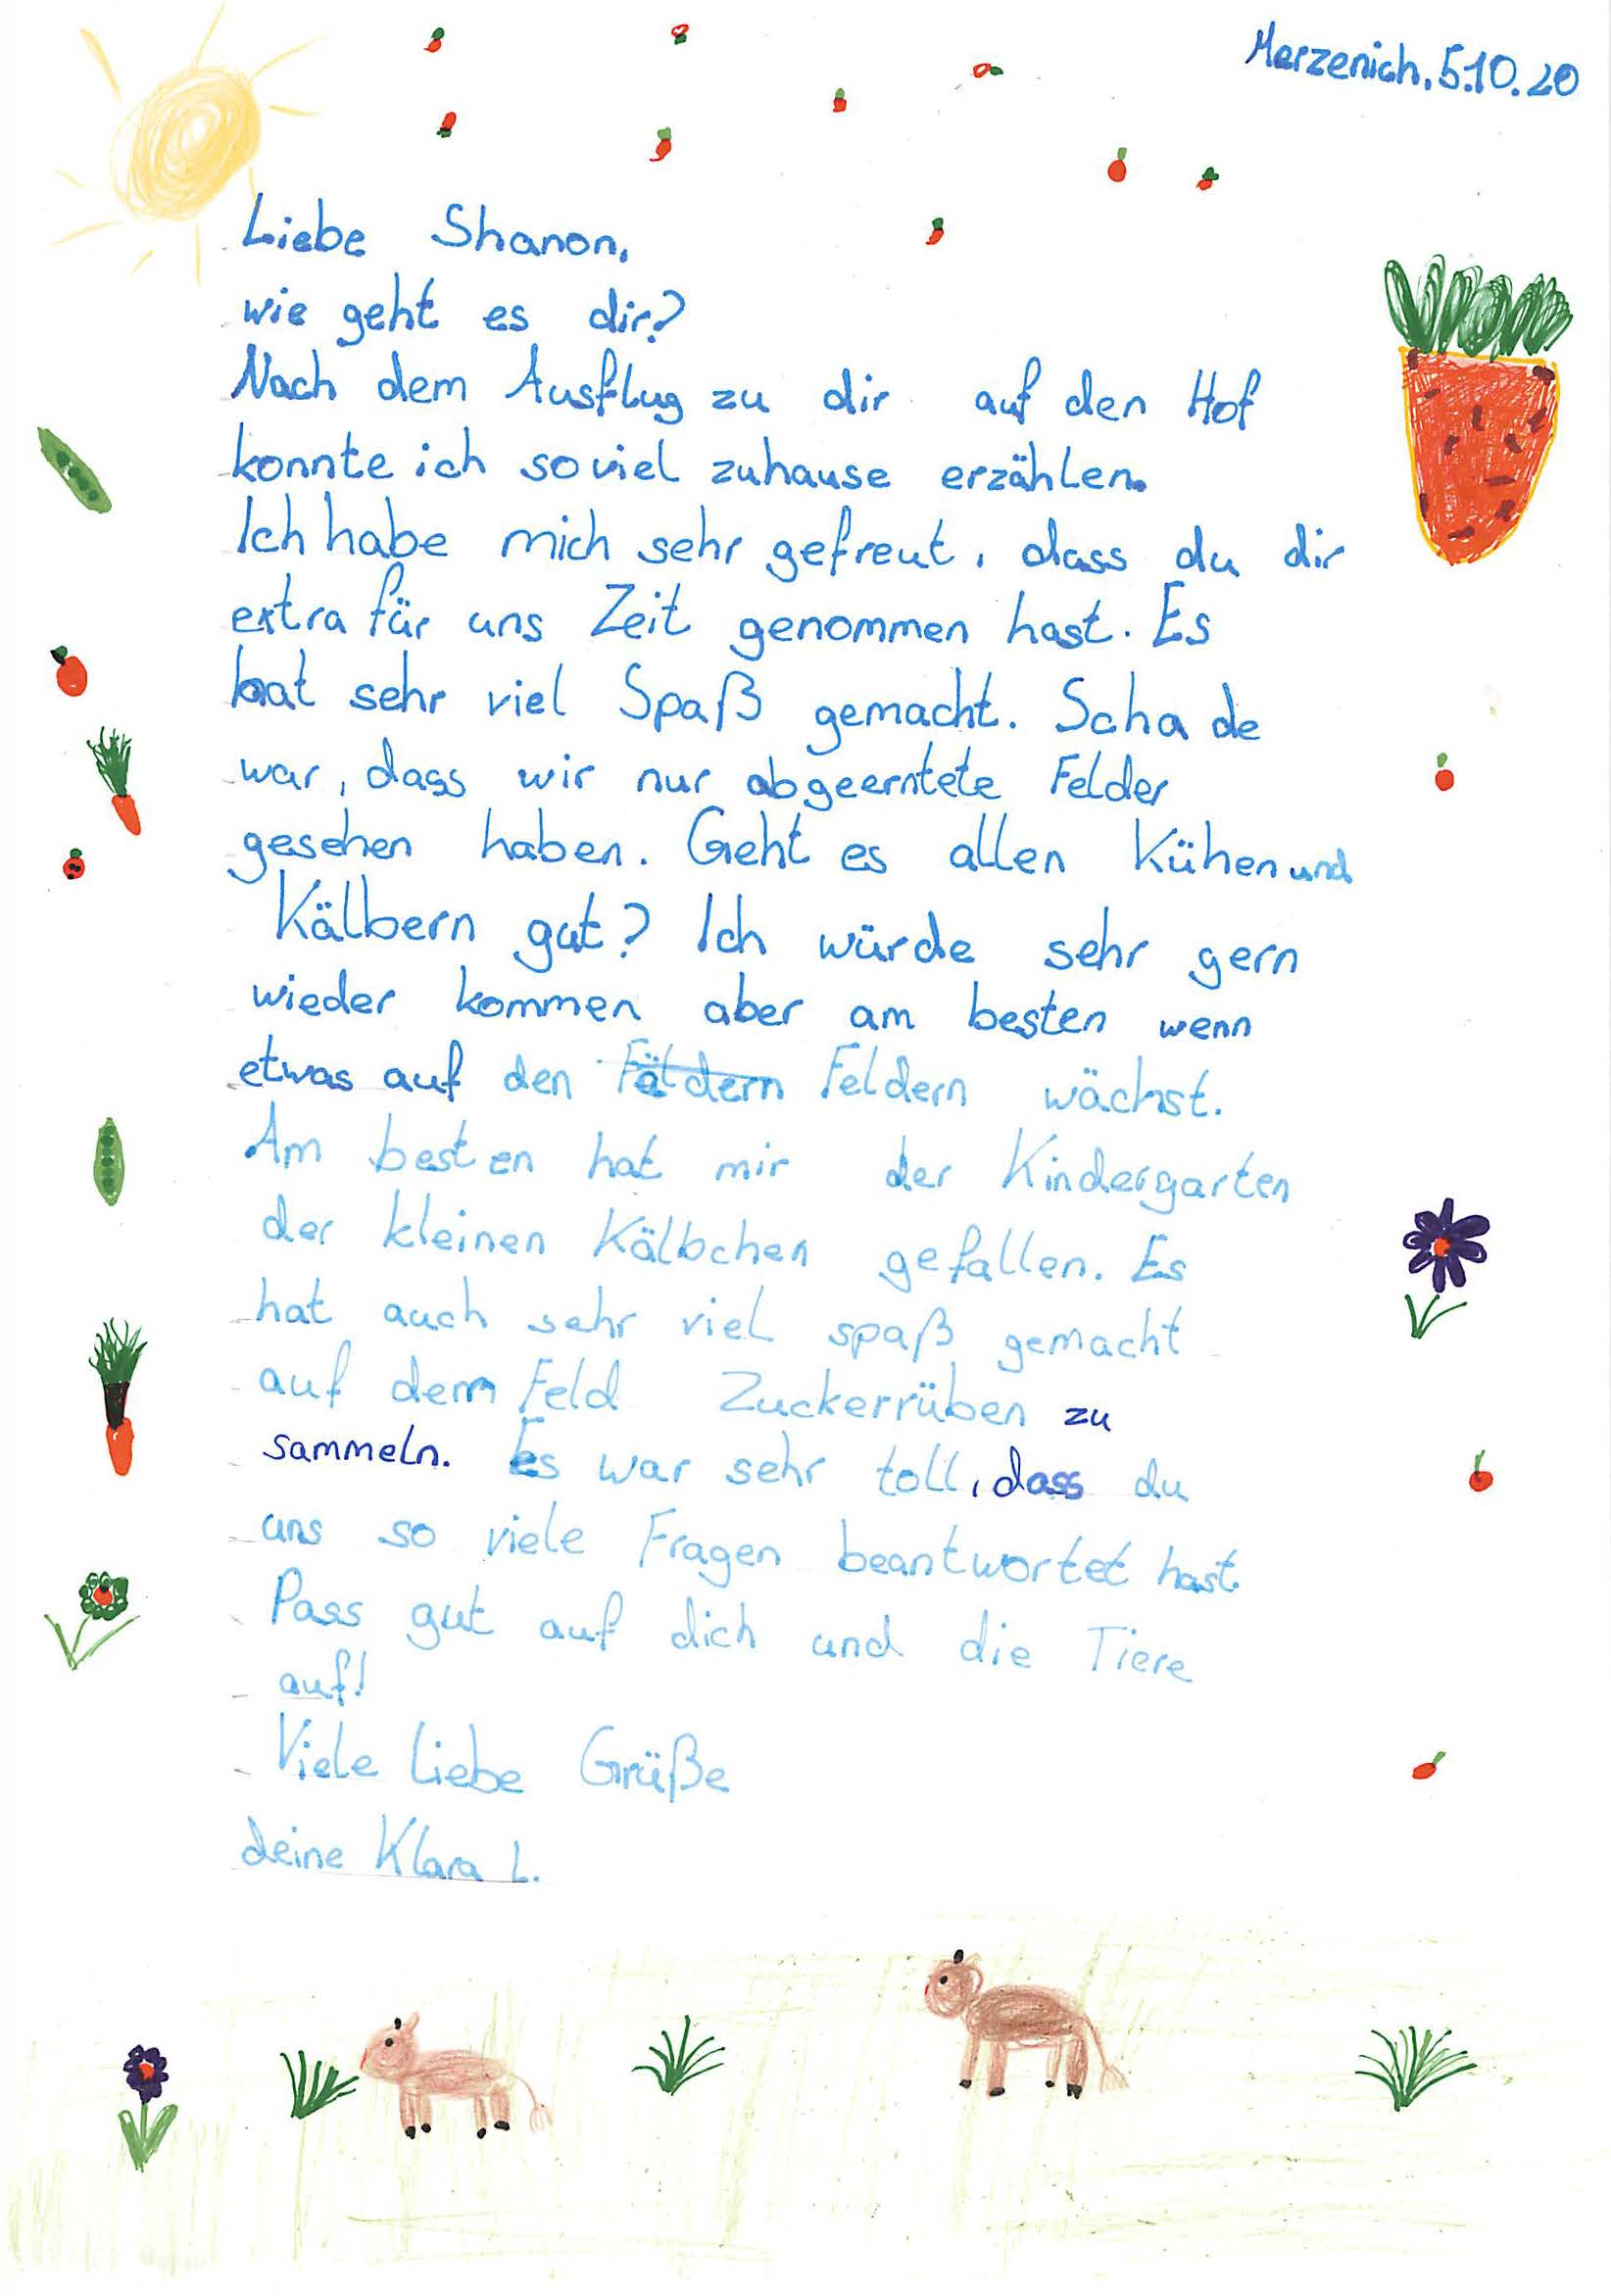 Merzenich, 5.10.20
Liebe Shanon,
wie geht es dir?
Nach dem Ausflug zu dir auf den Hof
konnte ich soviel zuhause erzählen.
Ich habe mich sehr gefreut, dass du dir
extra für uns Zeit genommen hast. Es
hat sehr viel Spaß gemacht. Schade
war, dass wir nur abgeerntete Felder
gesehen haben. Geht es allen Kühen und
Kälbern gut? Ich würde sehr gern
wieder kommen aber am besten wenn
etwas auf den Fäldern Feldern wächst.
Am besten hat mir der Kindergarten
der kleinen Kälbchen gefallen. Es
hat auch sehr viel spaß gemacht
auf dem Feld Zuckerrüben zu
sammeln. Es war sehr toll, dass du
uns so viele Fragen beantwortet hast.
Pass gut auf dich und die Tiere
auf!
Viele liebe Grüße
deine Klara L.